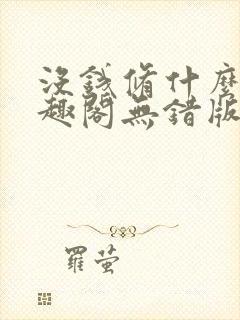 沒錢脩什麼
趣閣無錯版
羅萤